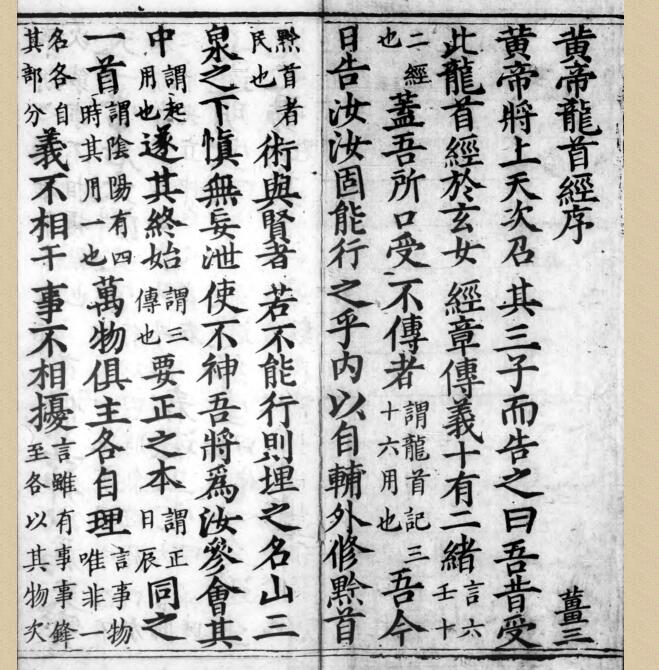 黃帝龍首經序 薑三
黃帝將上天次召其三子而告之曰吾昔受
此龍首經於玄女經章傳義十有二緒言六壬十
二經也蓋吾所口受不傳者謂龍首記三十六用也吾今
日告汝汝固能行之乎內以自輔外修黔首
黔首者民也術與賢者若不能行則埋之名山三
泉之下慎無妄泄使不神吾將爲汝參會其
中謂起用也遂其終始謂三傳也要正之本謂正日辰同之
一首謂陰陽有四時其用一也萬物俱主各自理言事物唯非一
名各自其部分義不相干事不相擾言雖有事事鋒至各以其物次